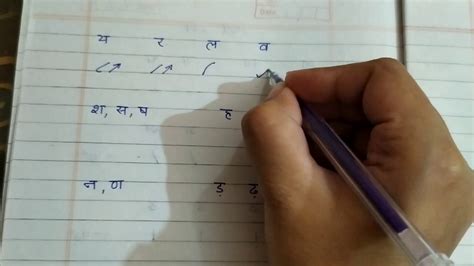 य र ल व
श, स, ष ह
न, ण ड़ ढ़